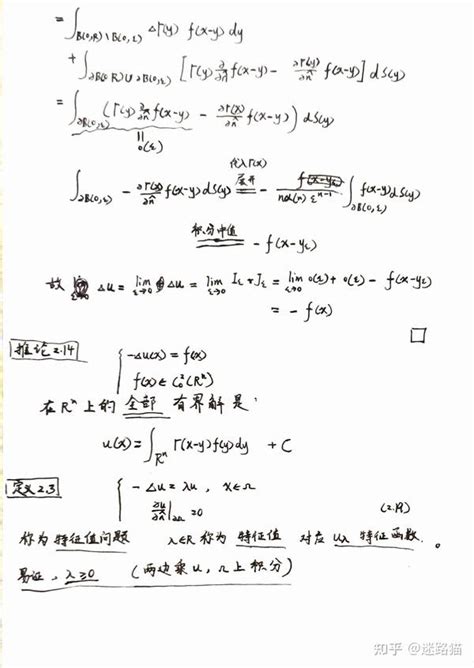 = ∫_{B(0,R)\B(0,ε)} ΔΓ(y) f(x-y) dy
+ ∫_{∂B(0,R)∪∂B(0,ε)} [Γ(y) ∂/∂n⃗ f(x-y) - ∂Γ(y)/∂n⃗ f(x-y)] dS(y)
= ∫_{∂B(0,ε)} (Γ(y) ∂/∂n⃗ f(x-y) - ∂Γ(y)/∂n⃗ f(x-y)) dS(y)
‖
o(ε)
代入Γ(x)
∫_{∂B(0,ε)} - ∂Γ(y)/∂n⃗ f(x-y) dS(y) = 展开 - 1/(nα(n) ε^{n-1}) ∫_{∂B(0,ε)} f(x-y) dS(y)
积分中值 = - f(x-y_ε)
故 Δu = lim_{ε→0} Δu = lim_{ε→0} I_ε + J_ε = lim_{ε→0} o(ε) + o(ε) - f(x-y_ε)
= - f(x)
□
推论2.14 { -Δu(x) = f(x)
f(x) ∈ C₀²(Rⁿ)
在 Rⁿ 上的 全部 有界解是:
u(x) = ∫_{Rⁿ} Γ(x-y) f(y) dy + C
定义2.3 { - Δu = λu , x∈Ω
∂u/∂n⃗|_{∂Ω} = 0 (2.19)
称为 特征值问题 λ∈R 称为 特征值 对应 u_λ 特征函数。
易证, λ≥0 (两边乘u, Ω上积分)
知乎 @迷路猫